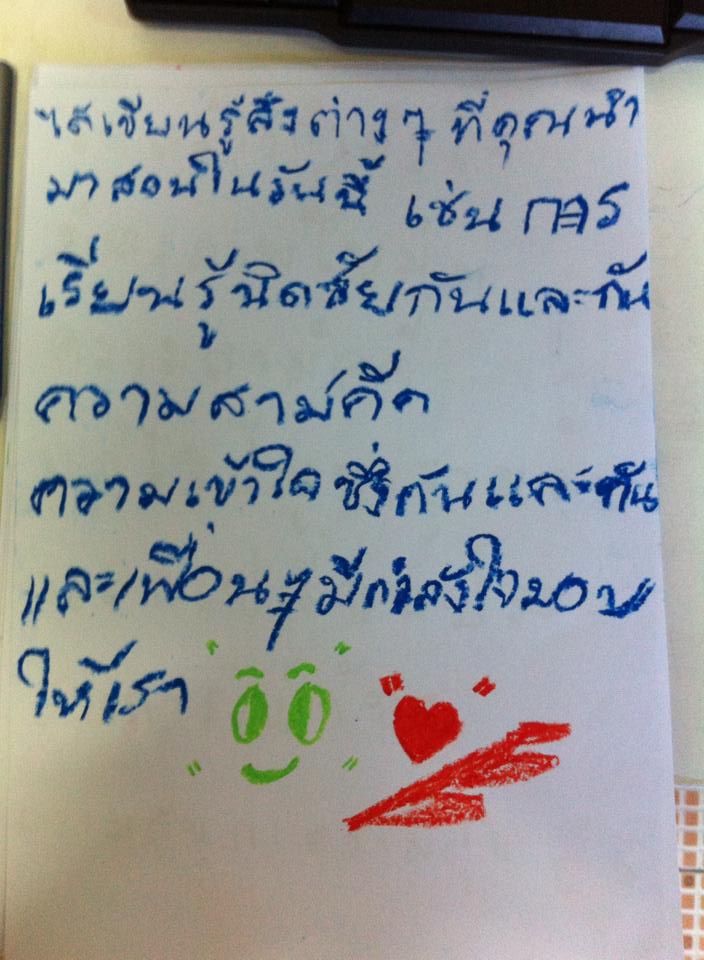 ได้เรียนรู้สิ่งต่างๆ ที่คุณนำ
มาสอนในวันนี้ เช่น การ
เรียนรู้นิดชัยกันและกัน
ความสามัคคี
ความเข้าใจ ซึ่งกันและกัน
และเพื่อนๆ มีกำลังใจมอบ
ให้เรา